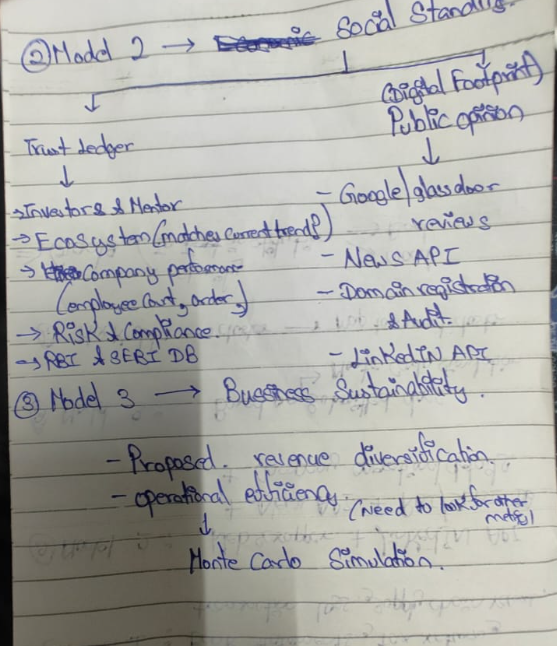 ② Model 2 → Social Standing
(Digital Footprint)
Public opinion
Trust Ledger
→ Investors & Mentor
→ Ecosystem (matches current trend?)
→ Company performance
(employee count, order,)
→ Risk & Compliance.
→ RBI & SEBI DB
- Google/glassdoor
reviews
- News API
- Domain registration
& Audit.
- LinkedIN API
③ Model 3 → Bussiness Sustainability.
- Proposed. revenue diversification
- operational efficiency.
(Need to look for other
metric)
Monte Carlo Simulation.